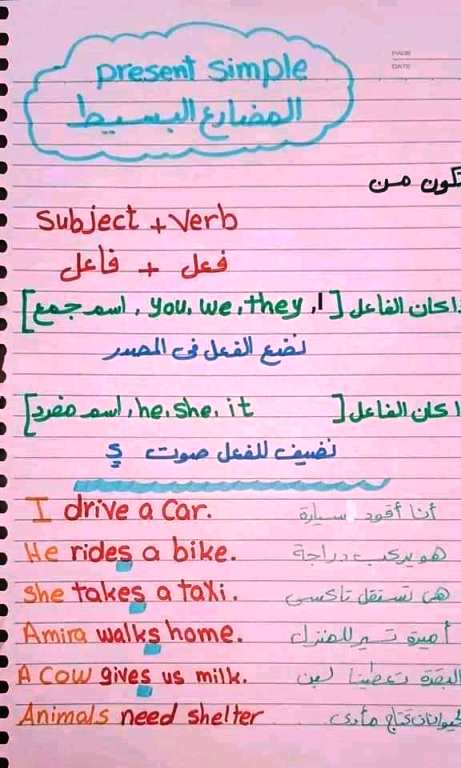 PAGE
DATE
present simple
المضارع البسيط
تكون من
Subject + Verb
فعل + فاعل
اكان الفاعل [I, you, we, they, اسم جمع]
نضع الفعل في المصدر
اكان الفاعل [he, she, it, اسم مفرد]
نضيف للفعل صوت S
I drive a car. أنا أقود سيارة
He rides a bike. هو يركب دراجة
She takes a taxi. هي تستقل تاكسى
Amira walks home. أميرة تسير للمنزل
A cow gives us milk. البقرة تعطينا لبن
Animals need shelter تحتاج مأوى